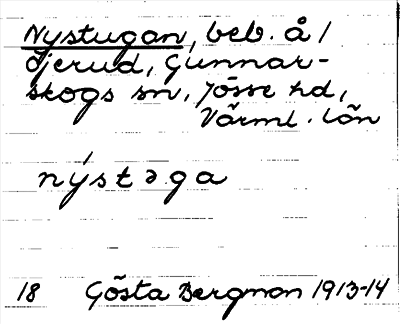 Nystugan, beb. å /
Djerud, Gunnar-
skogs sn, Jösse hd,
Värml. län
nýstəga
18 Gösta Bergman 1913-14